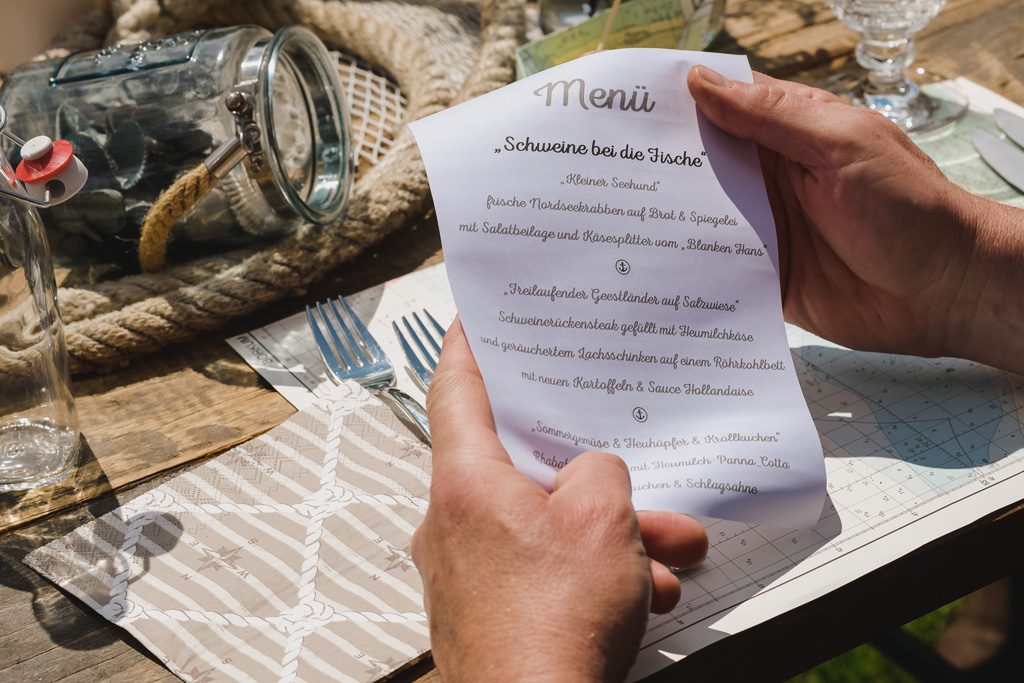 Menü
„Schweine bei die Fische“
„Kleiner Seehund“
frische Nordseekrabben auf Brot & Spiegelei
mit Salatbeilage und Käsesplitter vom „Blanken Hans“
„Freilaufender Geestländer auf Salzwiese“
Schweinerückensteak gefüllt mit Heumilchkäse
und geräuchertem Lachsschinken auf einem Röhrkohlbett
mit neuen Kartoffeln & Sauce Hollandaise
„Sommergemüse & Heuhüpfer & Krollkuchen“
mit Heumilch-Panna_Cotta
& Schlagsahne